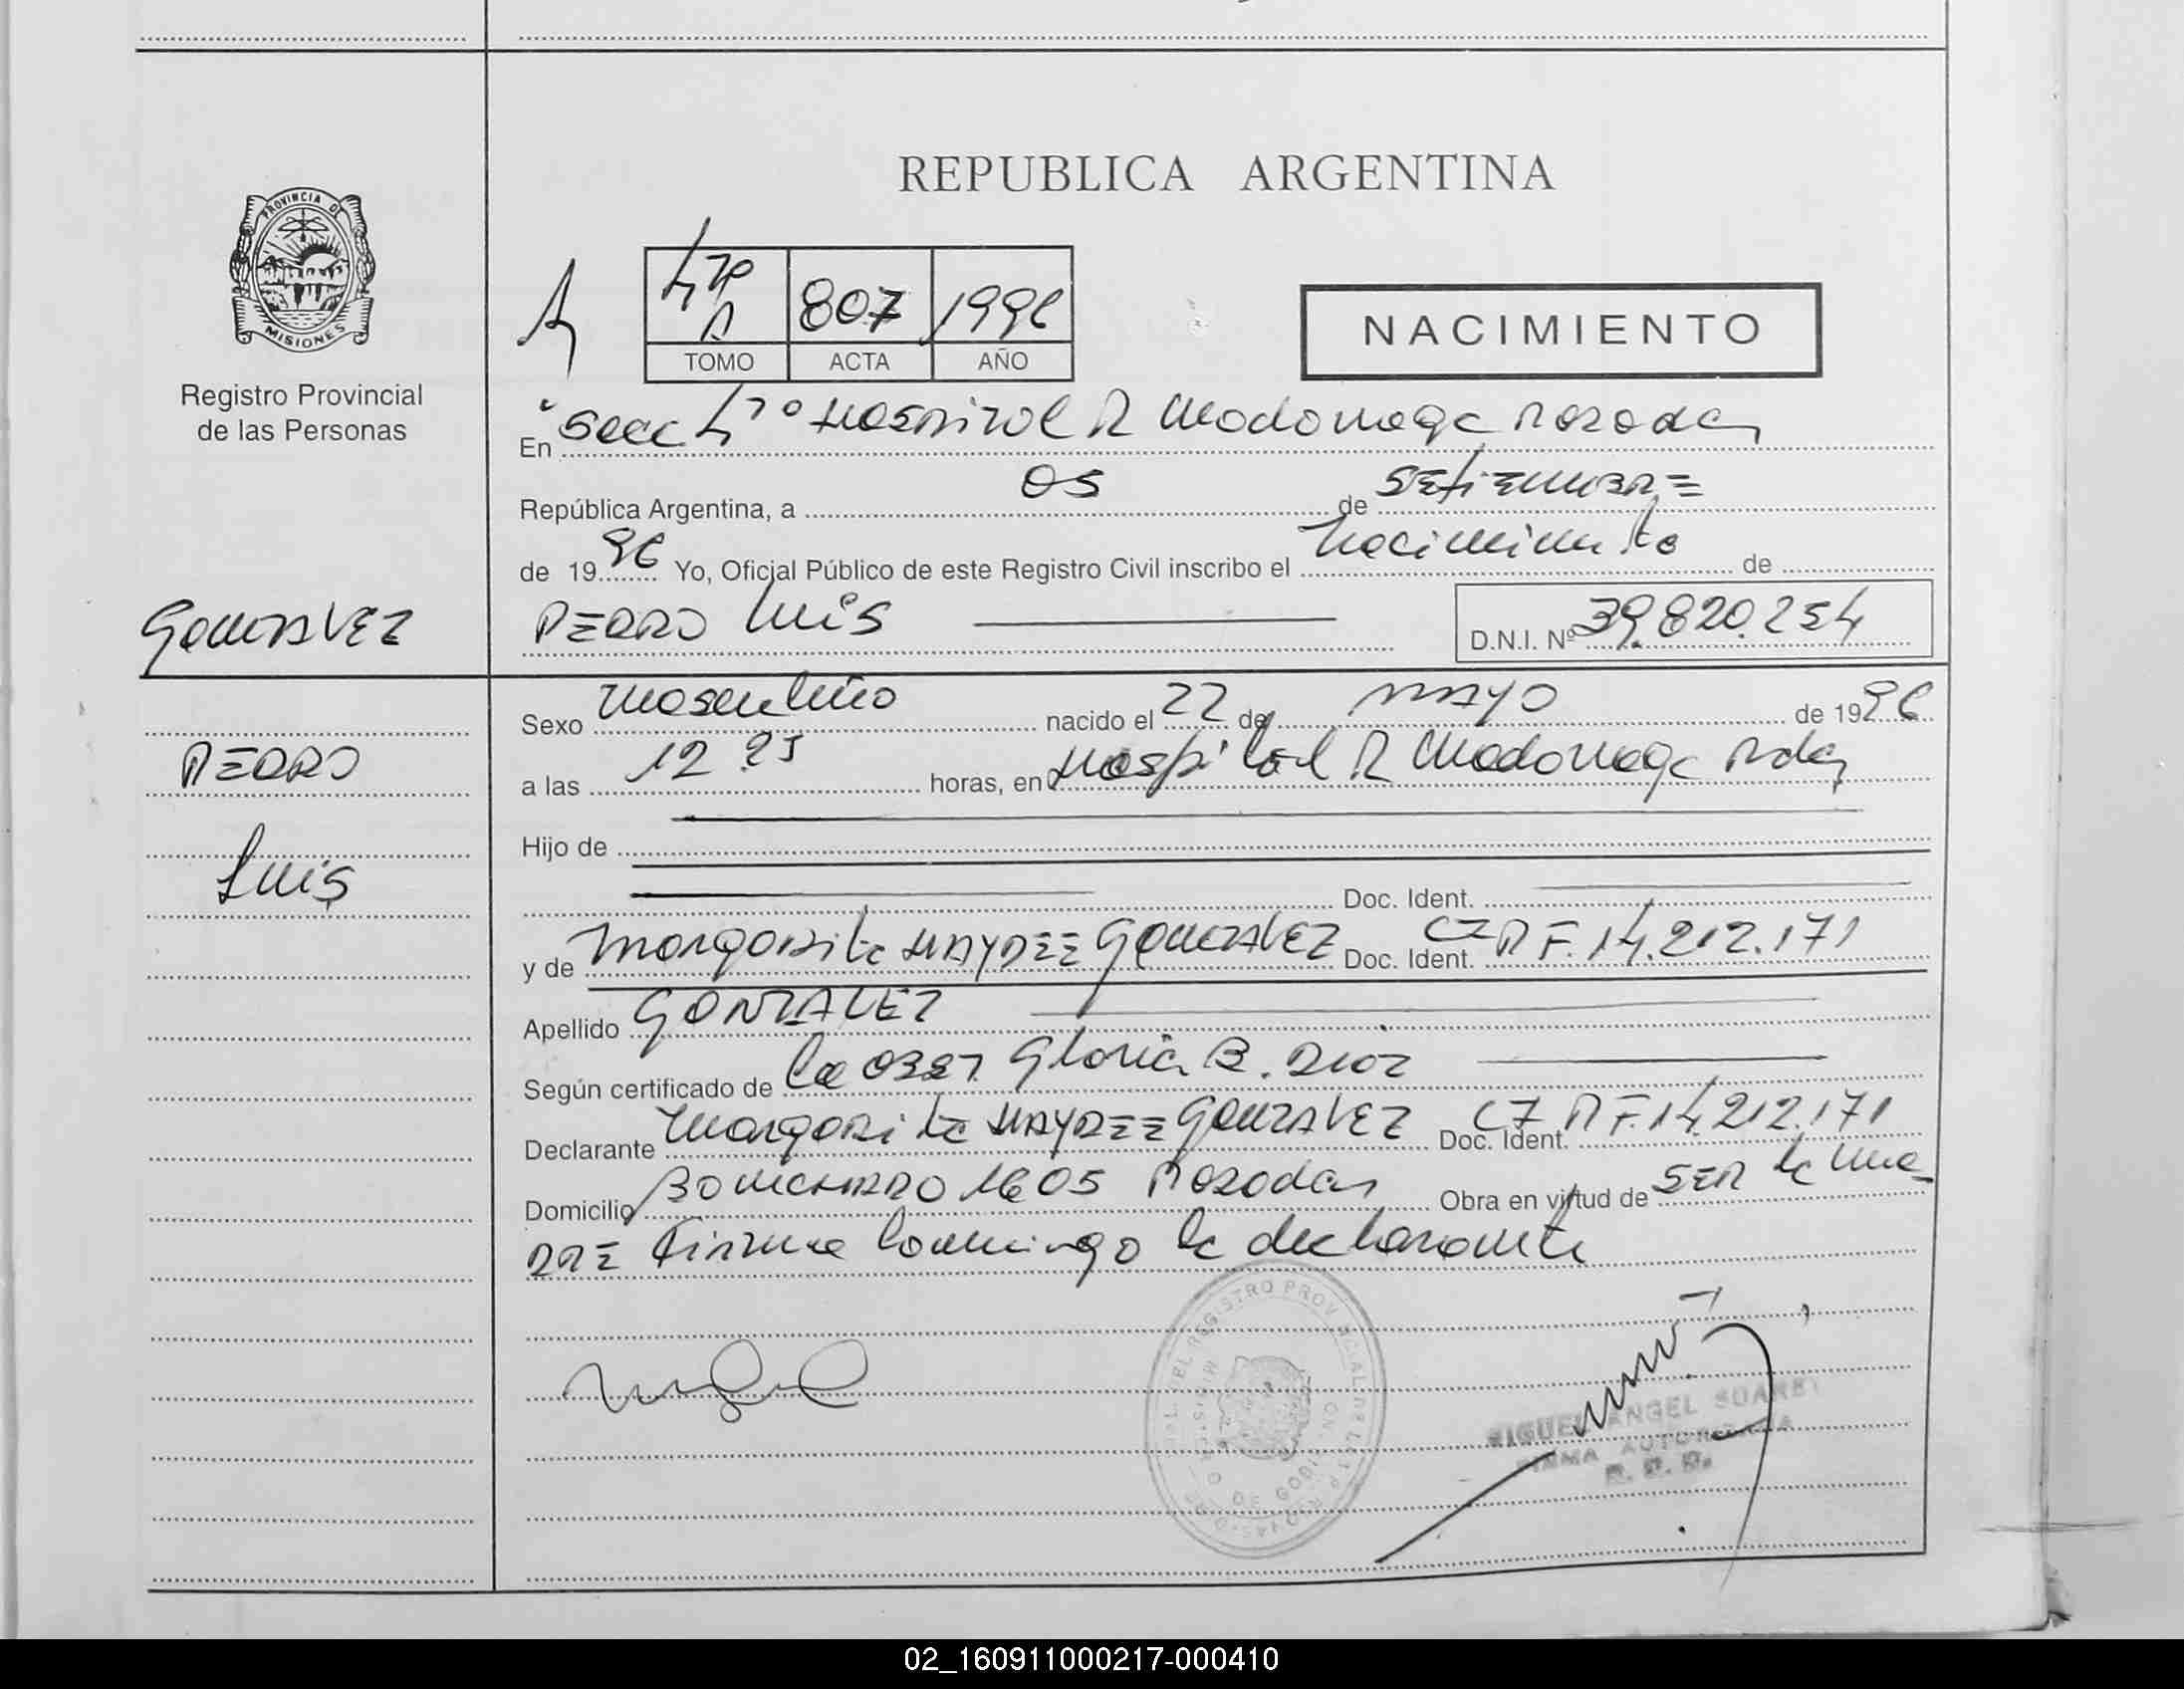 REPUBLICA ARGENTINA
PROVINCIA DE
MISIONES
Registro Provincial
de las Personas
807 1996
TOMO ACTA AÑO
NACIMIENTO
En Secc 4º Hospital R Madariaga Posadas
República Argentina, a 05 de SETIEMBRE
de 1996 Yo, Oficial Público de este Registro Civil inscribo el Nacimiento de
GONZALEZ
PEDRO LUIS D.N.I. Nº 39.820.254
PEDRO
Luis
Sexo Masculino nacido el 22 de MAYO de 1996
a las 12 25 horas, en Hospital R Madariaga Pdas
Hijo de
Doc. Ident.
y de Margarita HAYDEE GONZALEZ Doc. Ident. F. 14.212.171
Apellido GONZALEZ
Según certificado de La OBST. Gloria B. Diaz
Declarante Margarita HAYDEE GONZALEZ Doc. Ident. F. 14.212.171
Domicilio 1605 Posadas Obra en virtud de SER la ma
DRE Firma conmigo la declarante
MIGUEL ANGEL SUAREZ
FIRMA AUTORIZADA
02_160911000217-000410